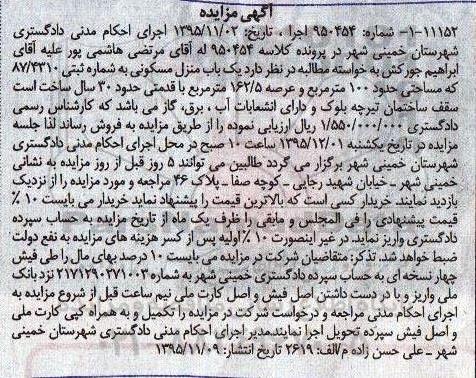 آگهی مزایده
۱-۱۱۱۵۲- شماره: ۹۵۰۴۵۴ اجرا ، تاریخ: ۱۳۹۵/۱۱/۰۲ اجرای احکام مدنی دادگستری
شهرستان خمینی شهر در پرونده کلاسه ۹۵۰۴۵۴ له آقای مرتضی هاشمی پور علیه آقای
ابراهیم جورکش به خواسته مطالبه در نظر دارد یک باب منزل مسکونی به شماره ثبتی ۸۷/۴۳۱۰
که مساحتی حدود ۱۰۰ مترمربع و عرصه ۱۶۲/۵ مترمربع با قدمتی حدود ۳۰ سال ساخت است
سقف ساختمان تیرچه بلوک و دارای انشعابات آب ، برق، گاز می باشد که کارشناس رسمی
دادگستری ۱/۵۵۰/۰۰۰/۰۰۰ ریال ارزیابی نموده را از طریق مزایده به فروش رساند لذا جلسه
مزایده در تاریخ یکشنبه ۱۳۹۵/۱۲/۰۱ ساعت ۱۰ صبح در محل اجرای احکام مدنی دادگستری
شهرستان خمینی شهر برگزار می گردد طالبین می توانند ۵ روز قبل از روز مزایده به نشانی
خمینی شهر ـ خیابان شهید رجایی ـ کوچه صفا ـ پلاک ۴۶ مراجعه و مورد مزایده را از نزدیک
بازدید نمایند. خریدار کسی است که بالاترین قیمت را پیشنهاد نماید خریدار می بایست ۱۰ ٪
قیمت پیشنهادی را فی المجلس و مابقی را ظرف یک ماه از تاریخ مزایده به حساب سپرده
دادگستری واریز نماید. در غیر اینصورت ۱۰ ٪ اولیه پس از کسر هزینه های مزایده به نفع دولت
ضبط خواهد شد. تذکر: متقاضیان شرکت در مزایده می بایست ۱۰ درصد بهای مال را طی فیش
چهار نسخه ای به حساب سپرده دادگستری خمینی شهر به شماره ۲۱۷۱۲۹۰۲۷۱۰۰۳ نزد بانک
ملی واریز و با در دست داشتن اصل فیش و اصل کارت ملی نیم ساعت قبل از شروع مزایده به
اجرای احکام مدنی مراجعه و درخواست شرکت در مزایده را تکمیل و به همراه کپی کارت ملی
و اصل فیش سپرده تحویل اجرا نمایند.مدیر اجرای احکام مدنی دادگستری شهرستان خمینی
شهر ـ علی حسن زاده م/الف: ۲۶۱۹ تاریخ انتشار: ۱۳۹۵/۱۱/۰۹